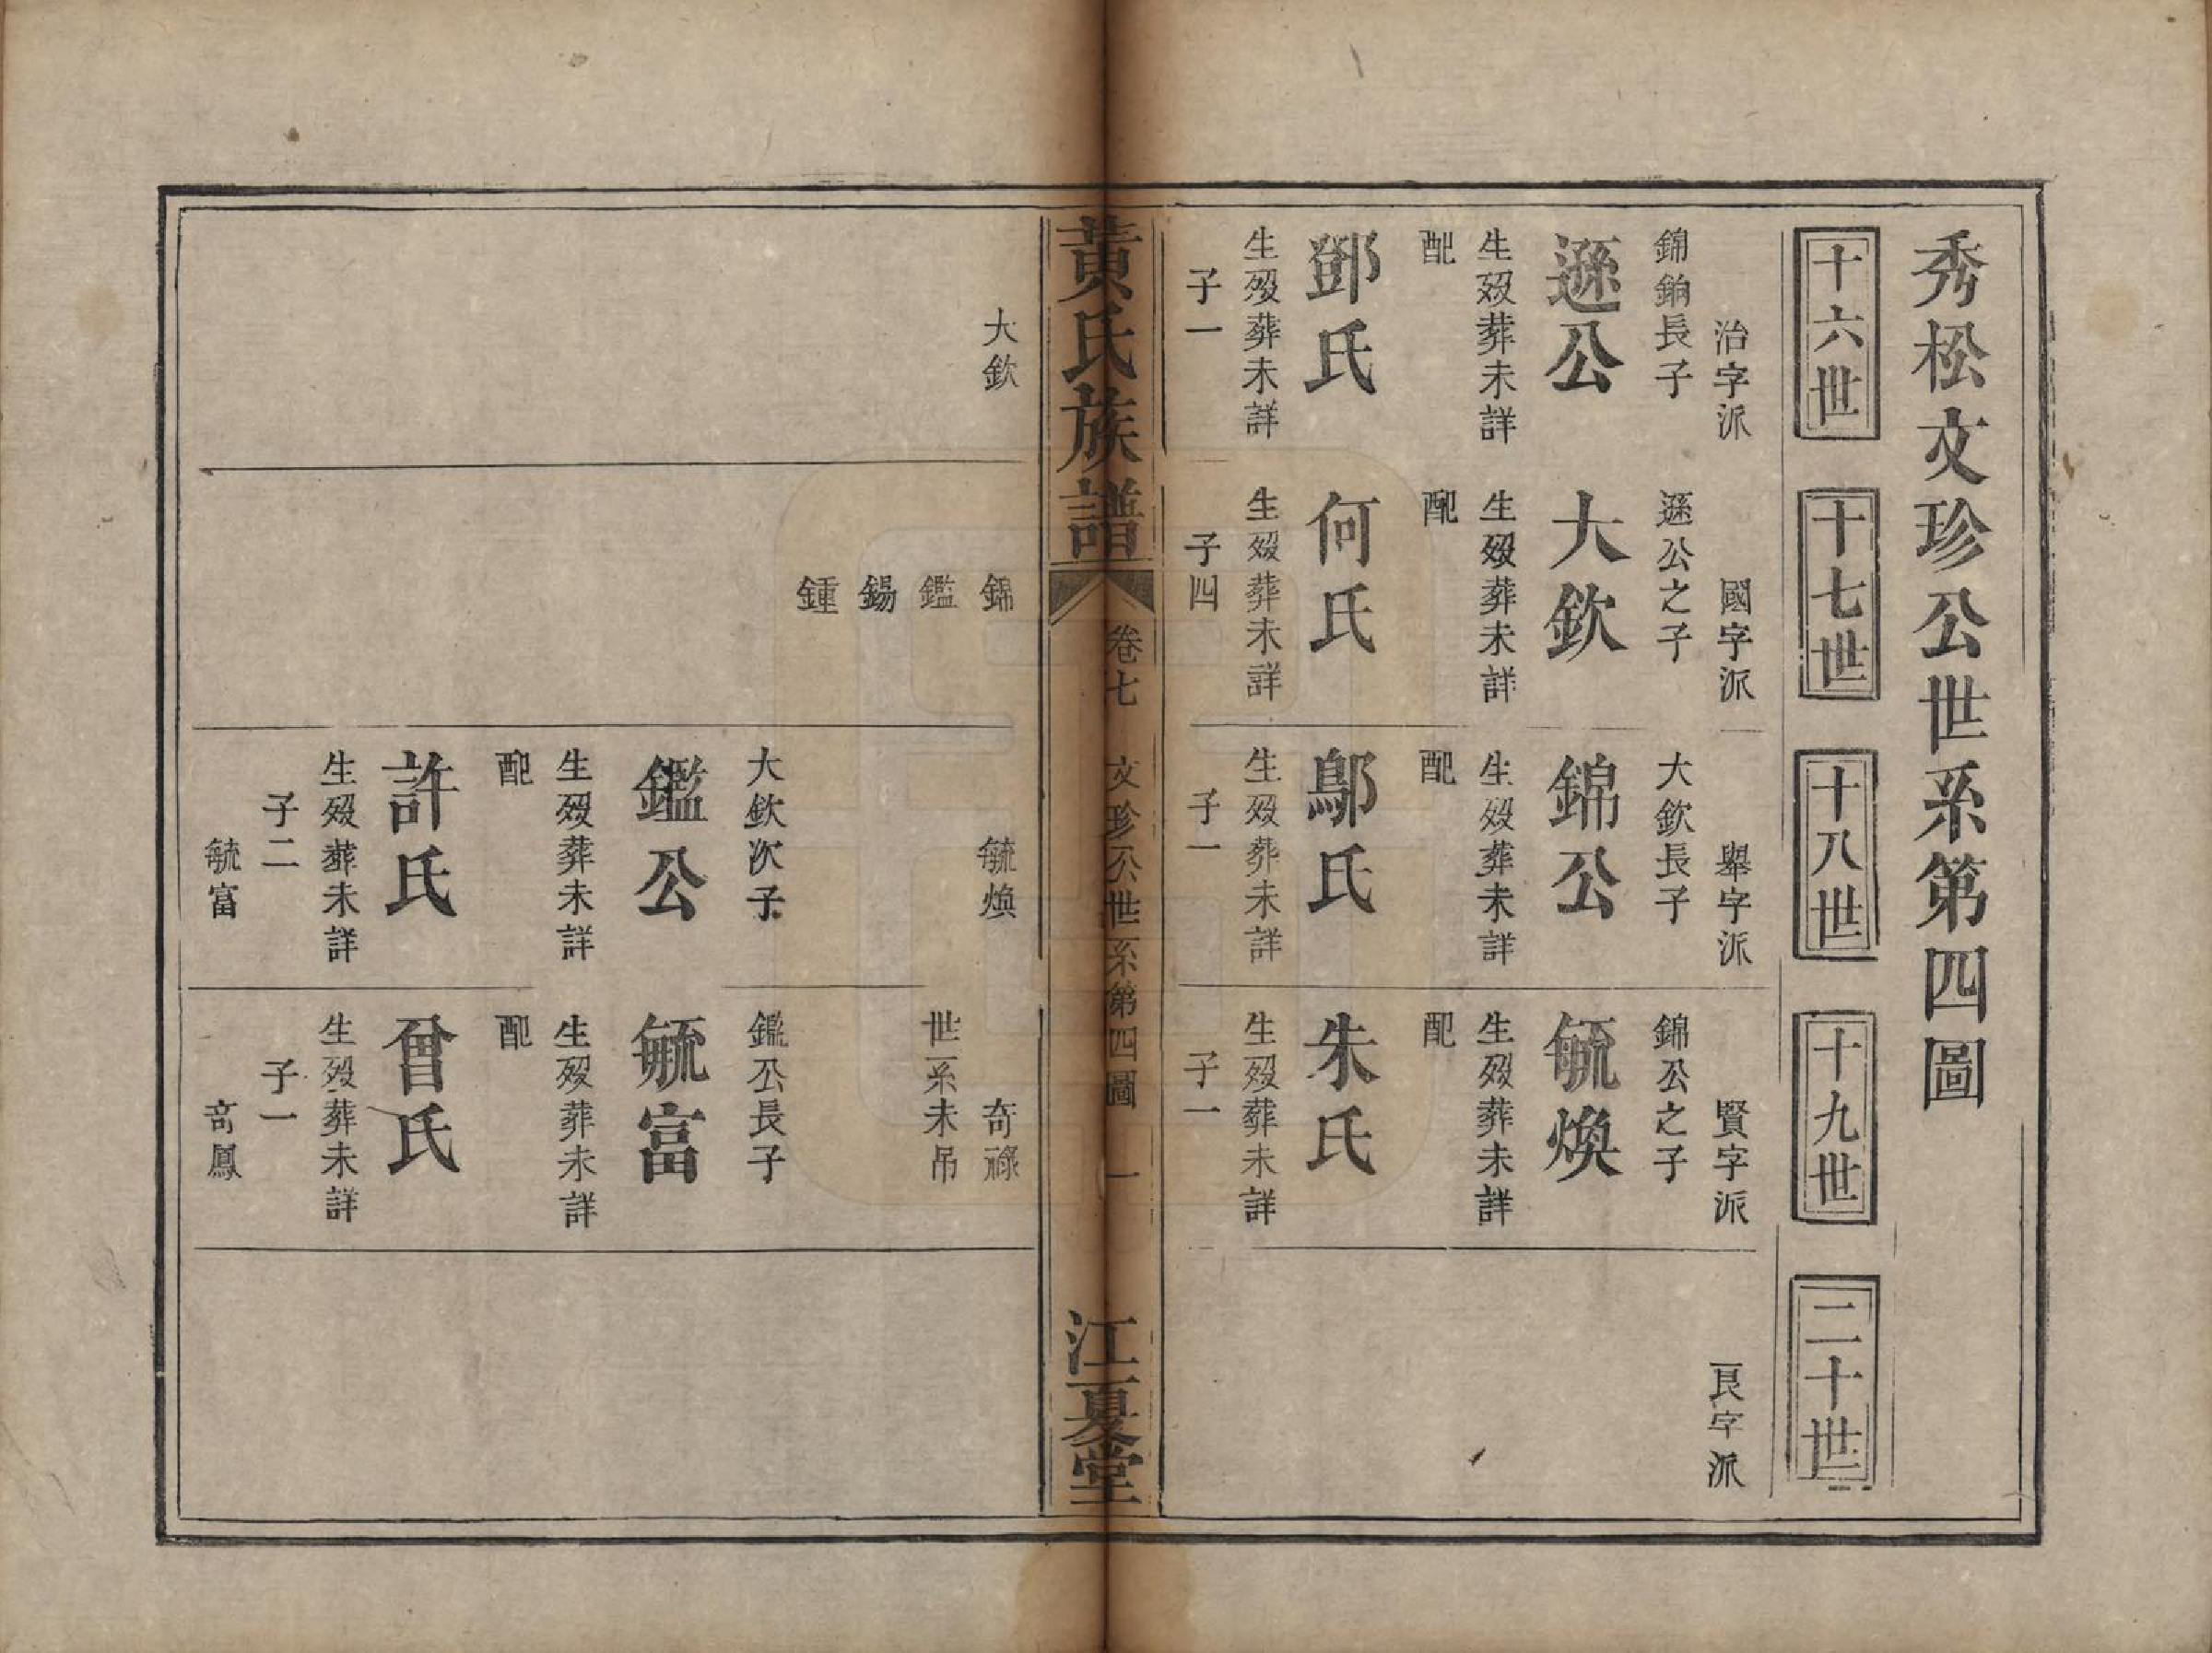 秀松文珍公世系第四圖
十六世
十七世
十八世
十九世
二十世
治字派
國字派
舉字派
賢字派
良字派
錦鉤長子
遜公
生歿葬未詳
配
鄧氏
生歿葬未詳
子一
遜公之子
大欽
生歿葬未詳
配
何氏
生歿葬未詳
子四
大欽長子
錦公
生歿葬未詳
配
鄔氏
生歿葬未詳
子一
錦公之子
毓煥
生歿葬未詳
配
朱氏
生歿葬未詳
子一
黃氏族譜
卷七
文珍公世系第四圖
一
江夏堂
大欽
錦
鑑
錫
鍾
毓煥
大欽次子
鑑公
生歿葬未詳
配
許氏
生歿葬未詳
子二
毓富
奇祿
世系未吊
鑑公長子
毓富
生歿葬未詳
配
曾氏
生歿葬未詳
子一
奇鳳